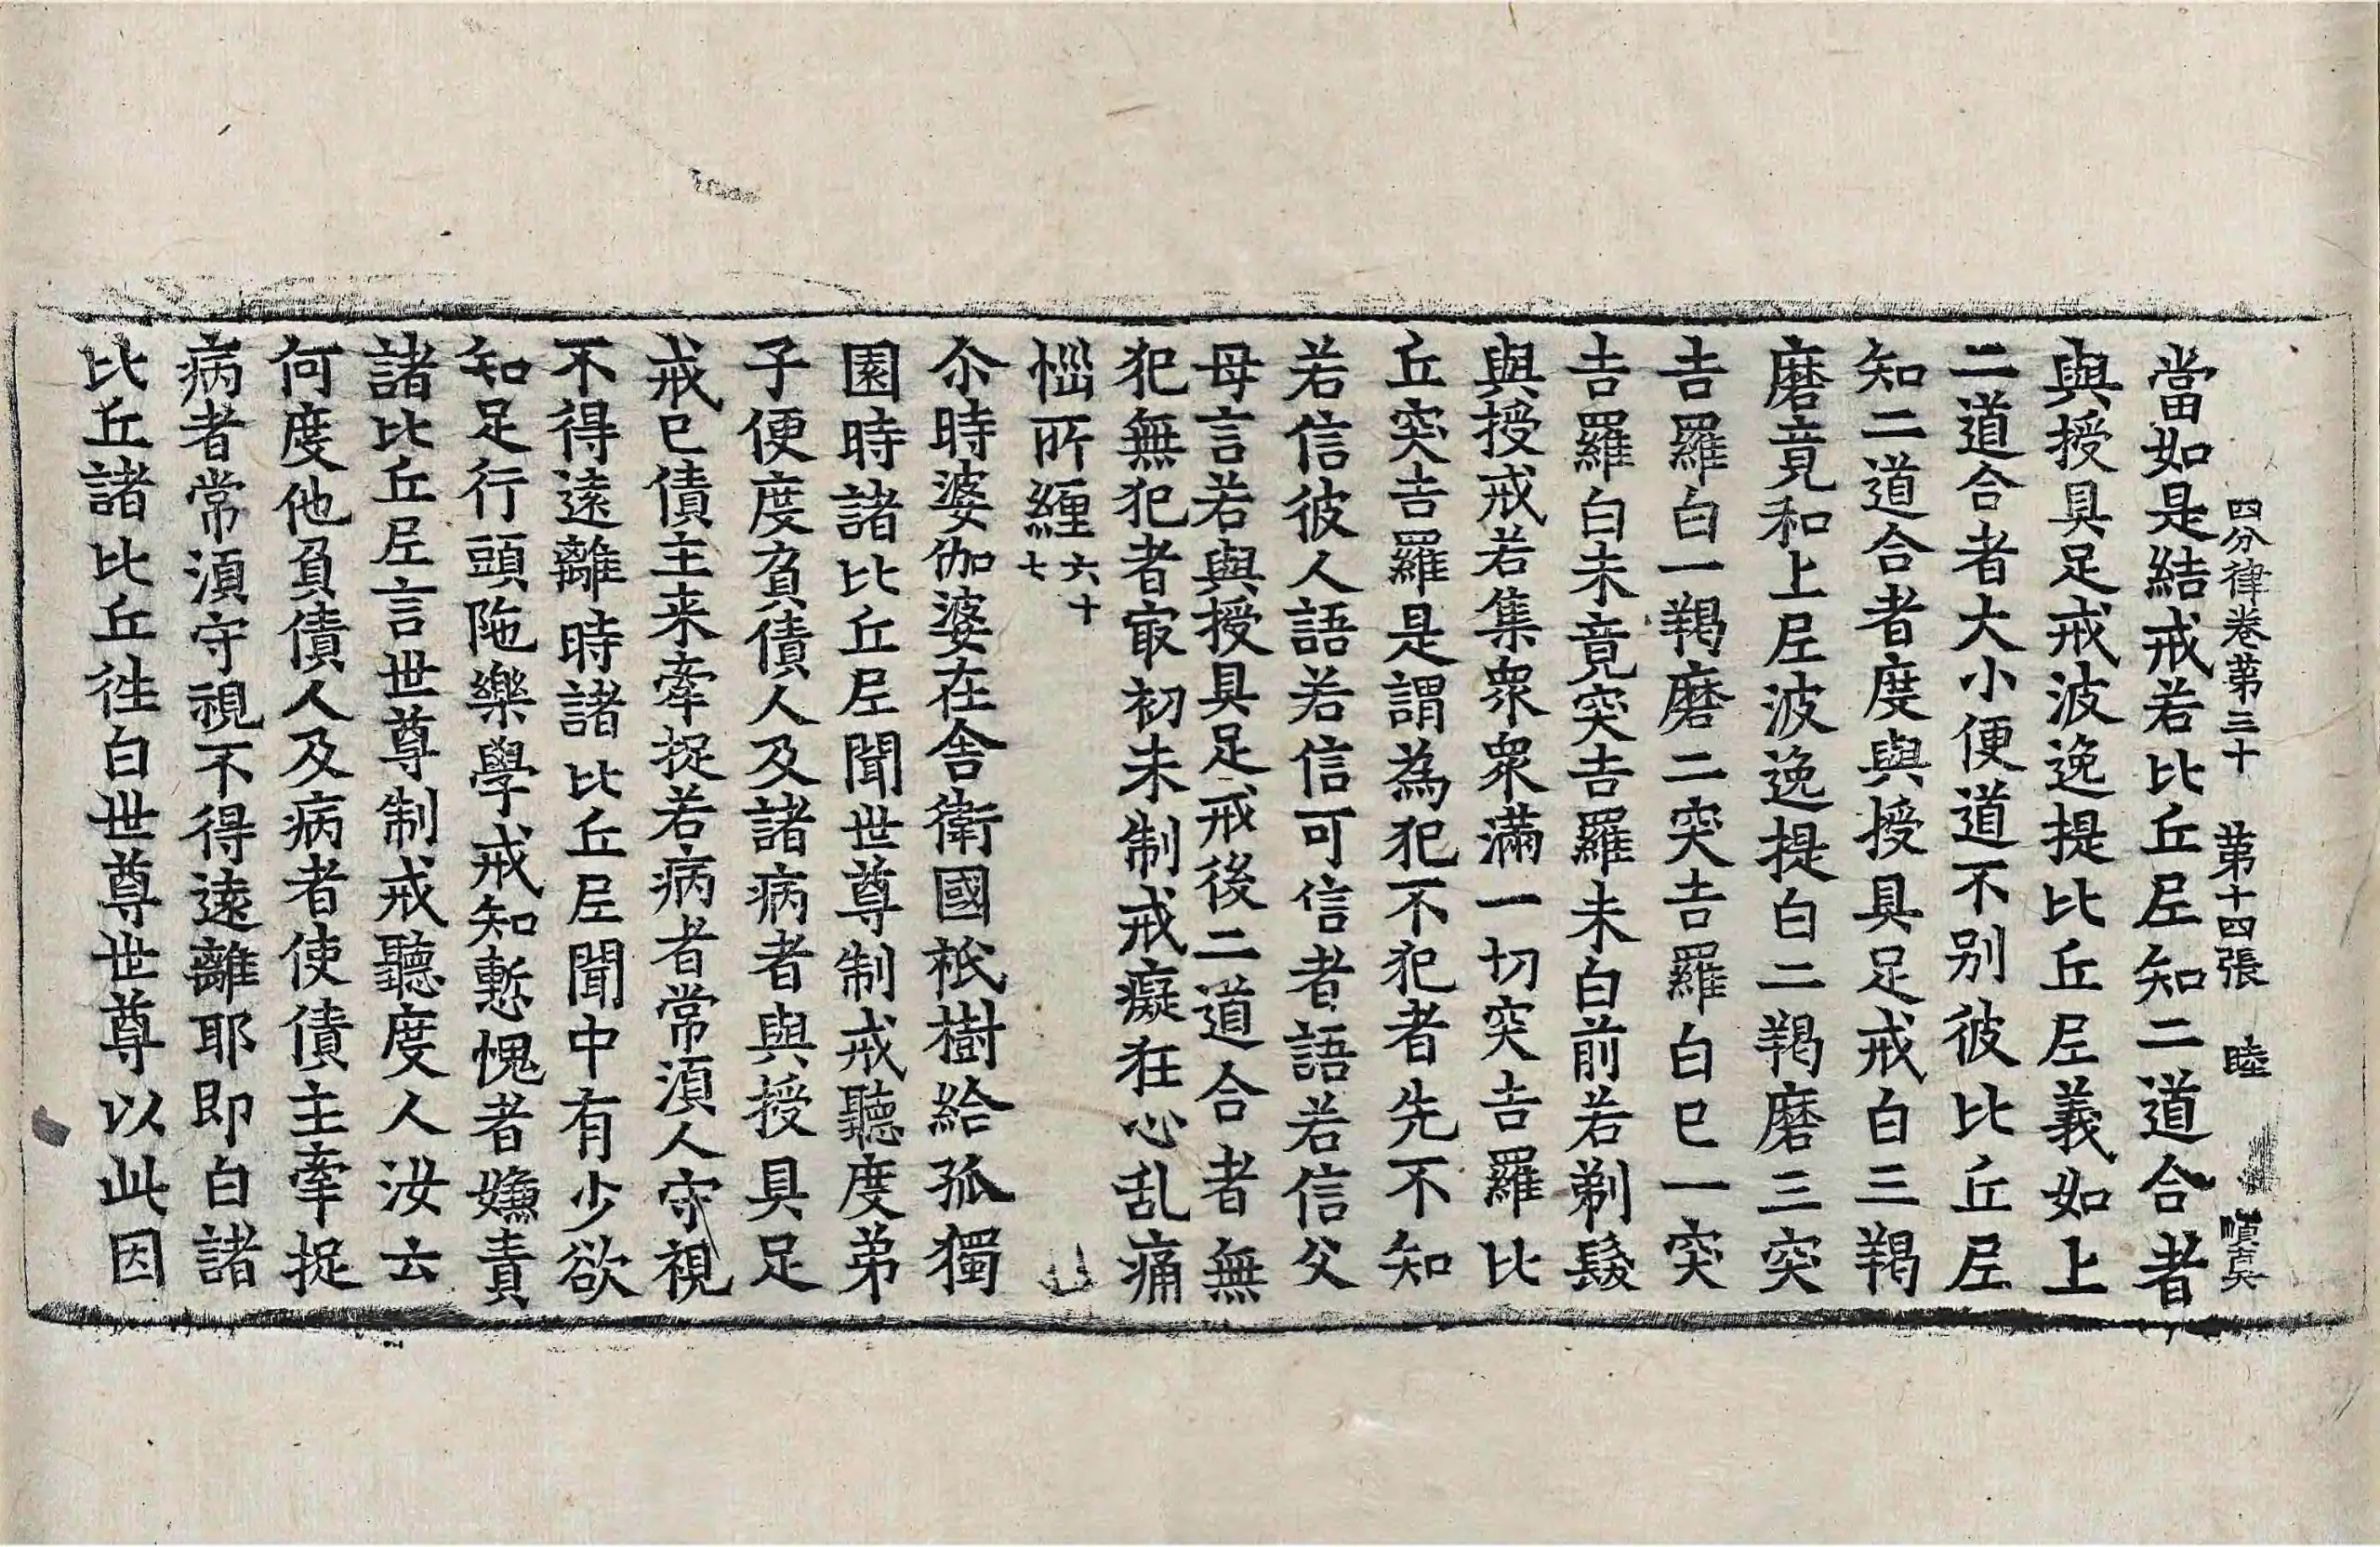 四分律卷第三十 第十四張 睦 眞
當如是結戒若比丘尼知二道合者
與授具足戒波逸提比丘尼義如上
二道合者大小便道不別彼比丘尼
知二道合者度與授具足戒白三羯
磨竟和上尼波逸提白二羯磨三突
吉羅白一羯磨二突吉羅白已一突
吉羅白未竟突吉羅未白前若剃髮
與授戒若集衆衆滿一切突吉羅比
丘突吉羅是謂為犯不犯者先不知
若信彼人語若信可信者語若信父
母言若與授具足戒後二道合者無
犯無犯者㝡初未制戒癡狂心乱痛
惱所纏六十七
尒時婆伽婆在舍衛國祇樹給孤獨
園時諸比丘尼聞世尊制戒聽度弟
子便度負債人及諸病者與授具足
戒已債主来牽捉若病者常湏人守視
不得遠離時諸比丘尼聞中有少欲
知足行頭陁樂學戒知慙愧者嫌責
諸比丘尼言世尊制戒聽度人汝云
何度他負債人及病者使債主牽捉
病者常湏守視不得遠離耶即白諸
比丘諸比丘徃白世尊世尊以此因